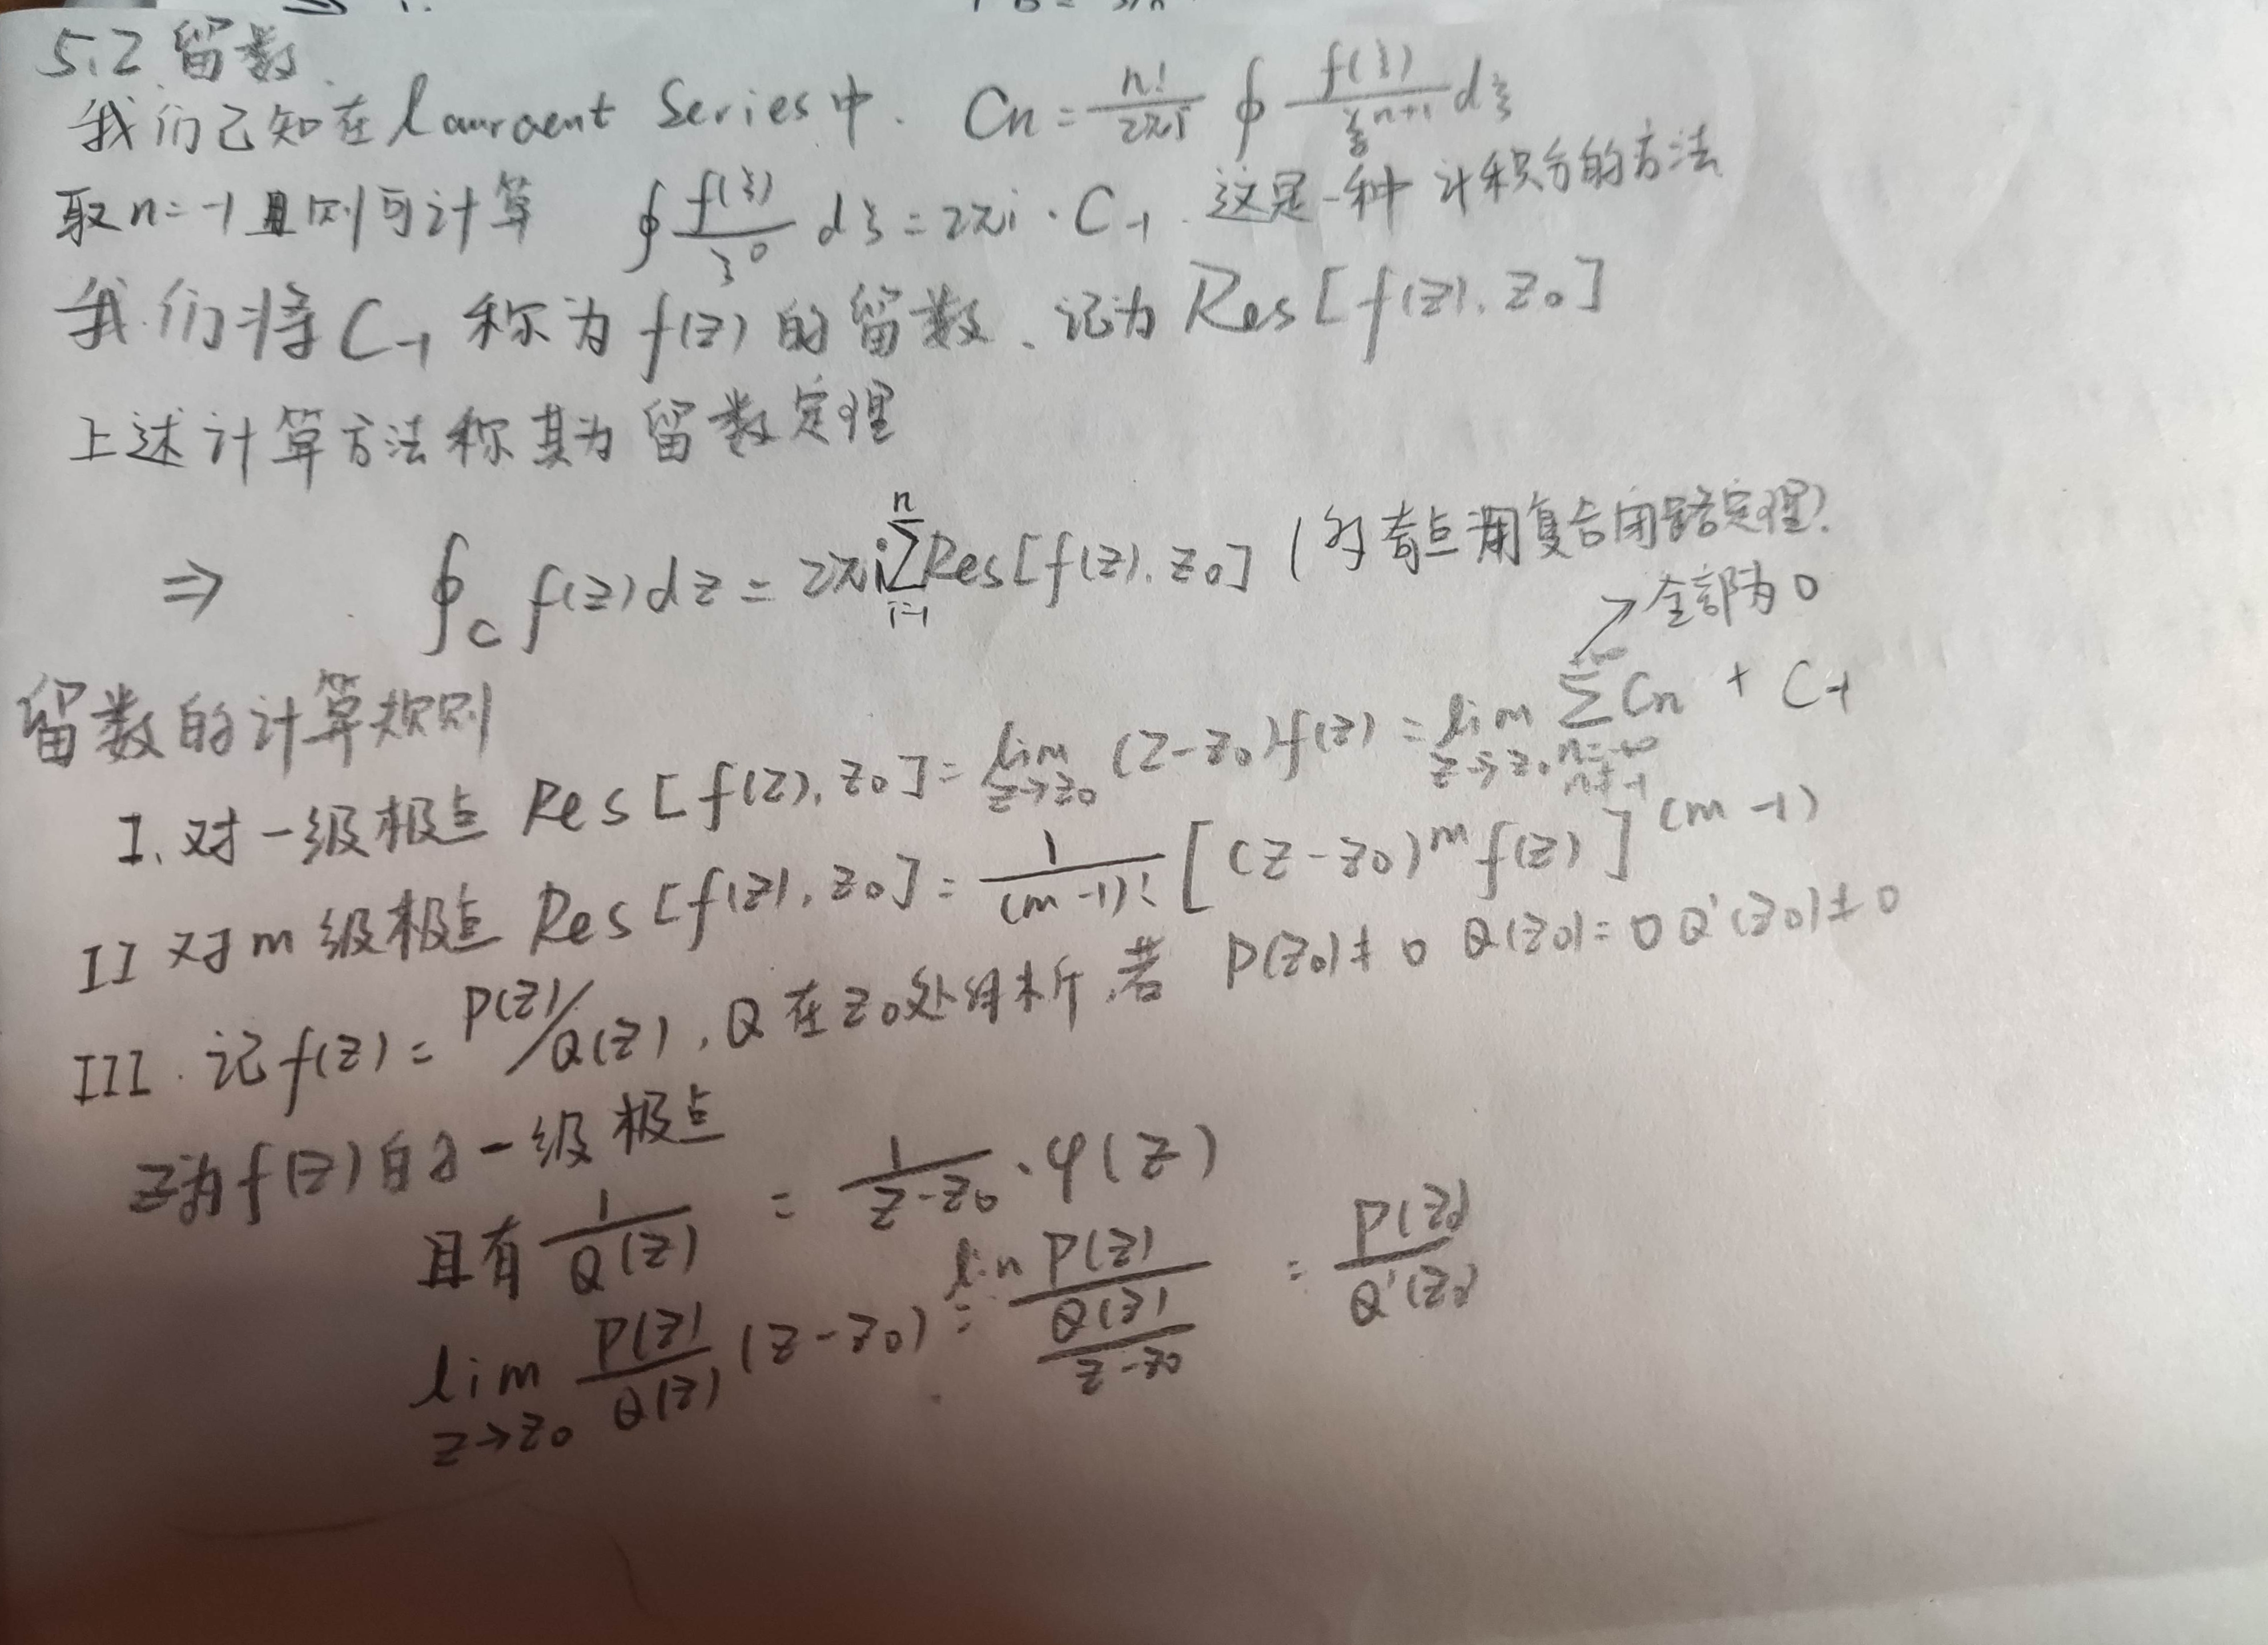 5.2 留数
我们已知在 Lauraent Series中. Cn = n!/2πi ∮ f(ξ)/ξ^{n+1} dξ
取n=-1 则可计算 ∮ f(ξ)/ξ^0 dξ = 2πi · C-1 这是一种计积分的方法
我们将 C-1 称为 f(z) 的留数、记为 Res[f(z), z0]
上述计算方法称其为留数定理
⇒ ∮_C f(z)dz = 2πi ∑_{i=1}^{n} Res[f(z), z0] (奇点用复合闭路定理).
↗全部为0
留数的计算规则
I. 对一级极点 Res[f(z), z0] = lim_{z→z0} (z-z0)f(z) = lim_{z→z0} ∑_{n=-∞, n≠-1}^{+∞} Cn + C-1
II 对于m级极点 Res[f(z), z0] = 1/(m-1)! [(z-z0)^m f(z)]^{(m-1)}
III. 记 f(z) = P(z)/Q(z), Q 在 z0处解析, 若 P(z0)≠0 Q(z0)=0 Q'(z0)≠0
z为f(z)的一级极点
且有 1/Q(z) = 1/(z-z0) · φ(z)
lim_{z→z0} P(z)/Q(z) (z-z0) = lim P(z)/(Q(z)/(z-z0)) = P(z0)/Q'(z0)